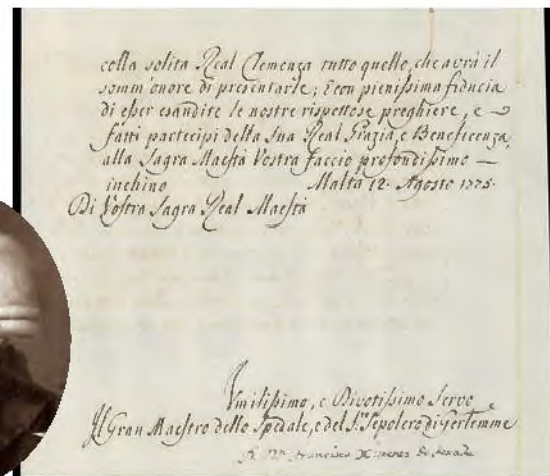 colla solita Real Clemenza tutto quello, che avrà il
somm'onore di presentarle; E con pienissima fiducia
di esser esaudite le nostre rispettose preghiere, e
fatti partecipi della sua Real Grazia, e Beneficenza,
alla Sagra Maestà Vostra faccio profondissimo —
inchino Malta 12. Agosto 1775.
Di Vostra Sagra Real Maestà
Umilissimo, e Divotissimo Servo
Il Gran Maestro dello Spedale, e del S.to Sepolcro di Gerlemme
Francisco Ximenes de Texada